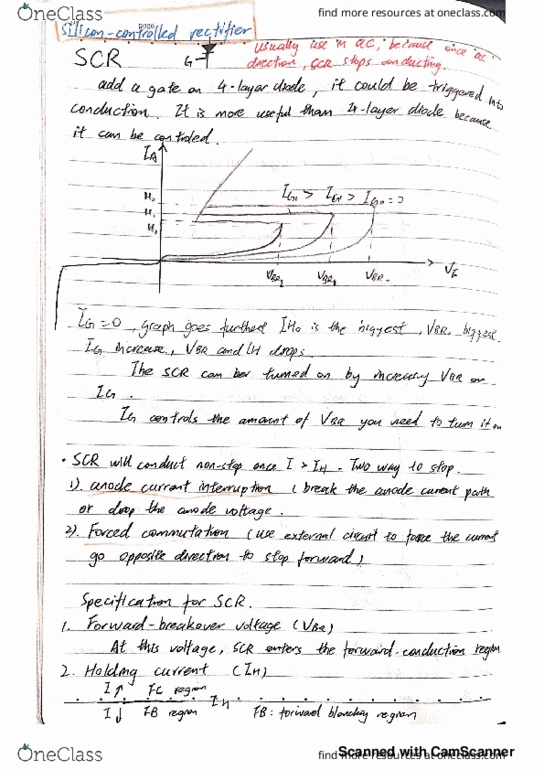 OneClass
find more resources at oneclass.com
Silicon-controlled rectifier
find more resources at oneclass.com
SCR
G
usually use in AC, because once ac
direction, SCR stops conducting.
add a gate on 4-layer diode, it could be triggered into
conduction. It is more useful than 4-layer diode because
it can be controled.
IA
IG2 > IG1 > IG0 = 0
H0
H1
H2
VBR2 VBR1 VBR0
VF
IG=0, graph goes furthest IH0 is the biggest, VBR0 biggest
IG increase, VBR and IH drops.
The SCR can be turned on by increasing VBR or
IG.
IG controls the amount of VBR you need to turn it on
• SCR will conduct non-stop once I > IH. Two way to stop.
1). anode current interruption ( break the anode current path
or drop the anode voltage.
2). Forced commutation (use external circuit to force the current
go opposite direction to stop forward)
Specification for SCR.
1. Forward-breakover voltage (VBR)
At this voltage, SCR enters the forward-conduction region
2. Holding current (IH)
I↑ FC region
IH
I↓ FB region FB: forward blocking region
OneClass
find more resources at oneclass.com
Scanned with CamScanner